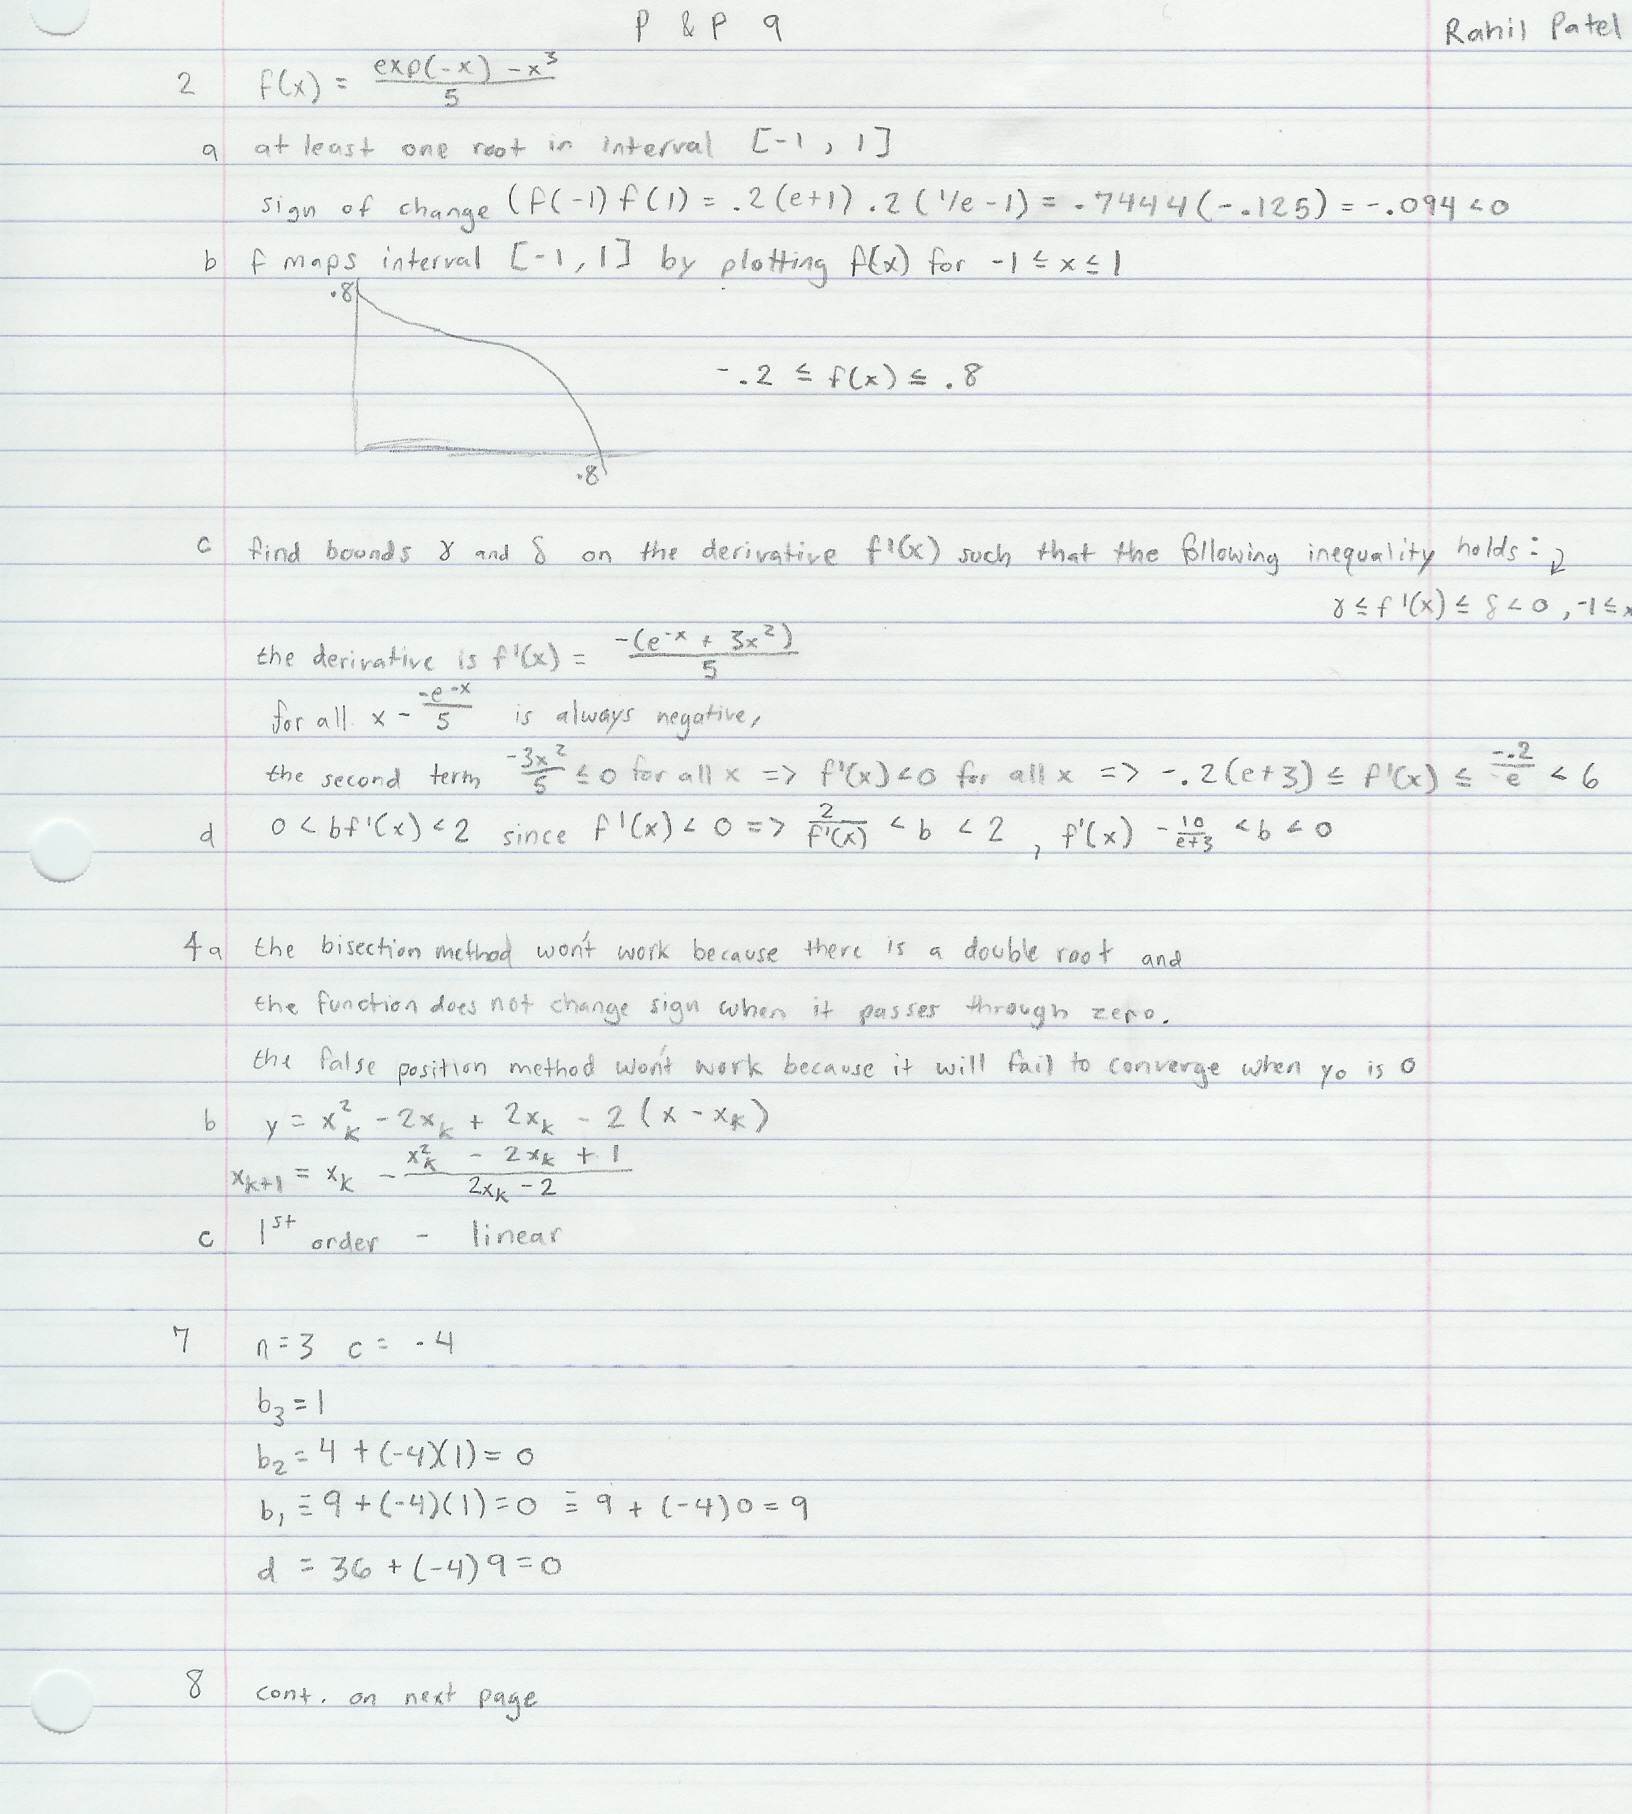 P & P 9
Rahil Patel
2 f(x) = (exp(-x) - x³)/5
a at least one root in interval [-1, 1]
sign of change (f(-1) f(1) = .2(e+1) .2(1/e - 1) = .7444(-.125) = -.094 < 0
b f maps interval [-1, 1] by plotting f(x) for -1 ≤ x ≤ 1
.8
-.2 ≤ f(x) ≤ .8
.8
c find bounds γ and δ on the derivative f'(x) such that the following inequality holds:
γ ≤ f'(x) ≤ δ < 0, -1 ≤ x
the derivative is f'(x) = -(e^-x + 3x²)/5
for all x - -e^-x/5 is always negative,
the second term -3x²/5 ≤ 0 for all x => f'(x) < 0 for all x => -.2(e+3) ≤ f'(x) ≤ -.2/e < 6
d 0 < bf'(x) < 2 since f'(x) < 0 => 2/f'(x) < b < 2, f'(x) -10/e+3 < b < 0
4a the bisection method won't work because there is a double root and
the function does not change sign when it passes through zero.
the false position method won't work because it will fail to converge when y0 is 0
b y = x_k² - 2x_k + 2x_k - 2(x - x_k)
x_k+1 = x_k - (x_k² - 2x_k + 1)/(2x_k - 2)
c 1st order - linear
7 n=3 c= -4
b3 = 1
b2 = 4 + (-4)(1) = 0
b1 = 9 + (-4)(1) = 0 = 9 + (-4)0 = 9
d = 36 + (-4)9 = 0
8 cont. on next page